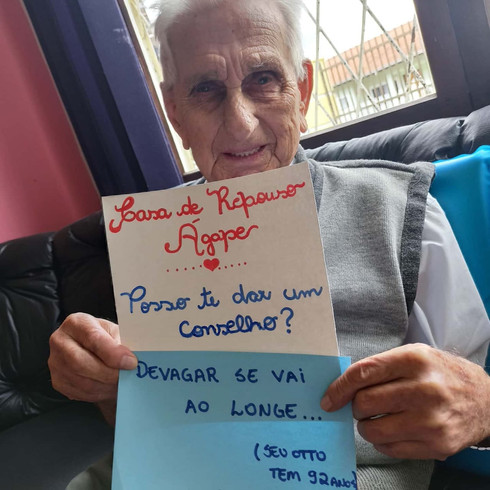 Casa de Repouso
Ágape
Posso te dar um
conselho?
DEVAGAR SE VAI
AO LONGE...
(SEU OTTO
TEM 92 ANOS)